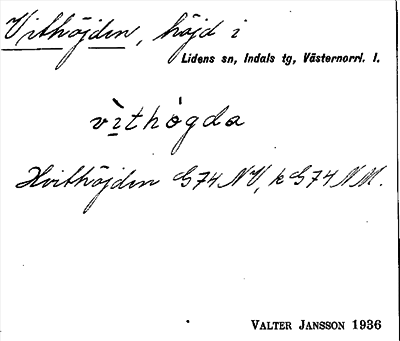 Vithöjden, höjd i
Lidens sn, Indals tg, Västernorrl. l.
vìthögda
Hvithöjden G74 NV, k G74 NM.
VALTER JANSSON 1936